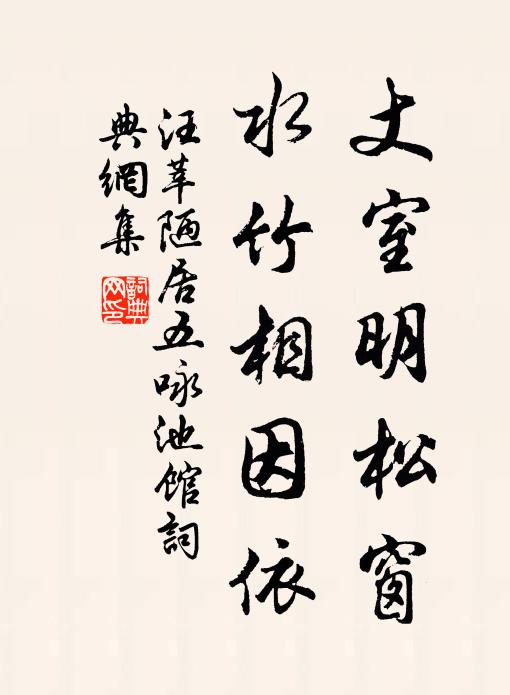 丈室明松窗
水竹相因依
汪莘陋居五咏池馆詞
典網集
詞典网印